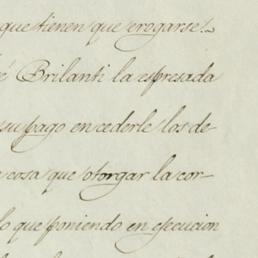 que tienen que erogarse.
é Brilanti la espresada
su pago en cederle los de-
cosa que otorgar la cor-
lo que poniendo en ejecucion